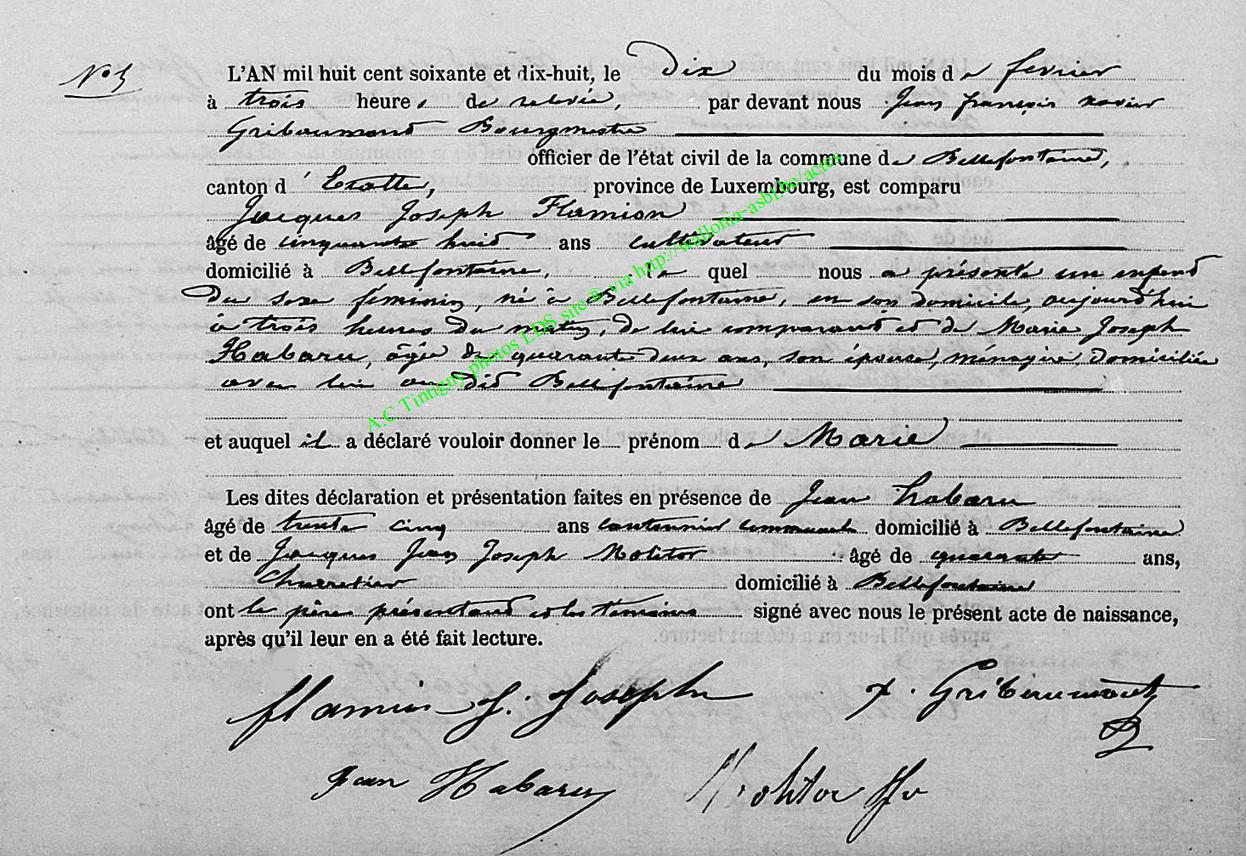 N° 5
L'AN mil huit cent soixante et dix-huit, le Dix du mois de fevrier
à trois heures de relevée, par devant nous Jean françois xavier
Gribaumont Bourgmestre
officier de l'état civil de la commune de Bellefontaine,
canton d'Etalle, province de Luxembourg, est comparu
Jacques Joseph Flamion
âgé de cinquante huit ans cultivateur
domicilié à Bellefontaine, le quel nous a présenté un enfant
du sexe féminin, né à Bellefontaine, en son domicile, aujourd'hui
à trois heures du matin, de lui comparant et de Marie Joseph
Habaru, âgée de quarante deux ans, son épouse, ménagère, domiciliée
avec lui au dit Bellefontaine
et auquel il a déclaré vouloir donner le prénom de Marie
Les dites déclaration et présentation faites en présence de Jean habaru
âgé de trente cinq ans cantonnier communal domicilié à Bellefontaine
et de Jacques Jean Joseph Molitor âgé de quarante ans,
Charretier domicilié à Bellefontaine
ont le père présentant et les témoins signé avec nous le présent acte de naissance,
après qu'il leur en a été fait lecture.
flamion J. Joseph X. Gribaumont
Jean Habaru Molitor
A.C Tintigny photos LDS site® via http://wallonia-asbl.be/actes